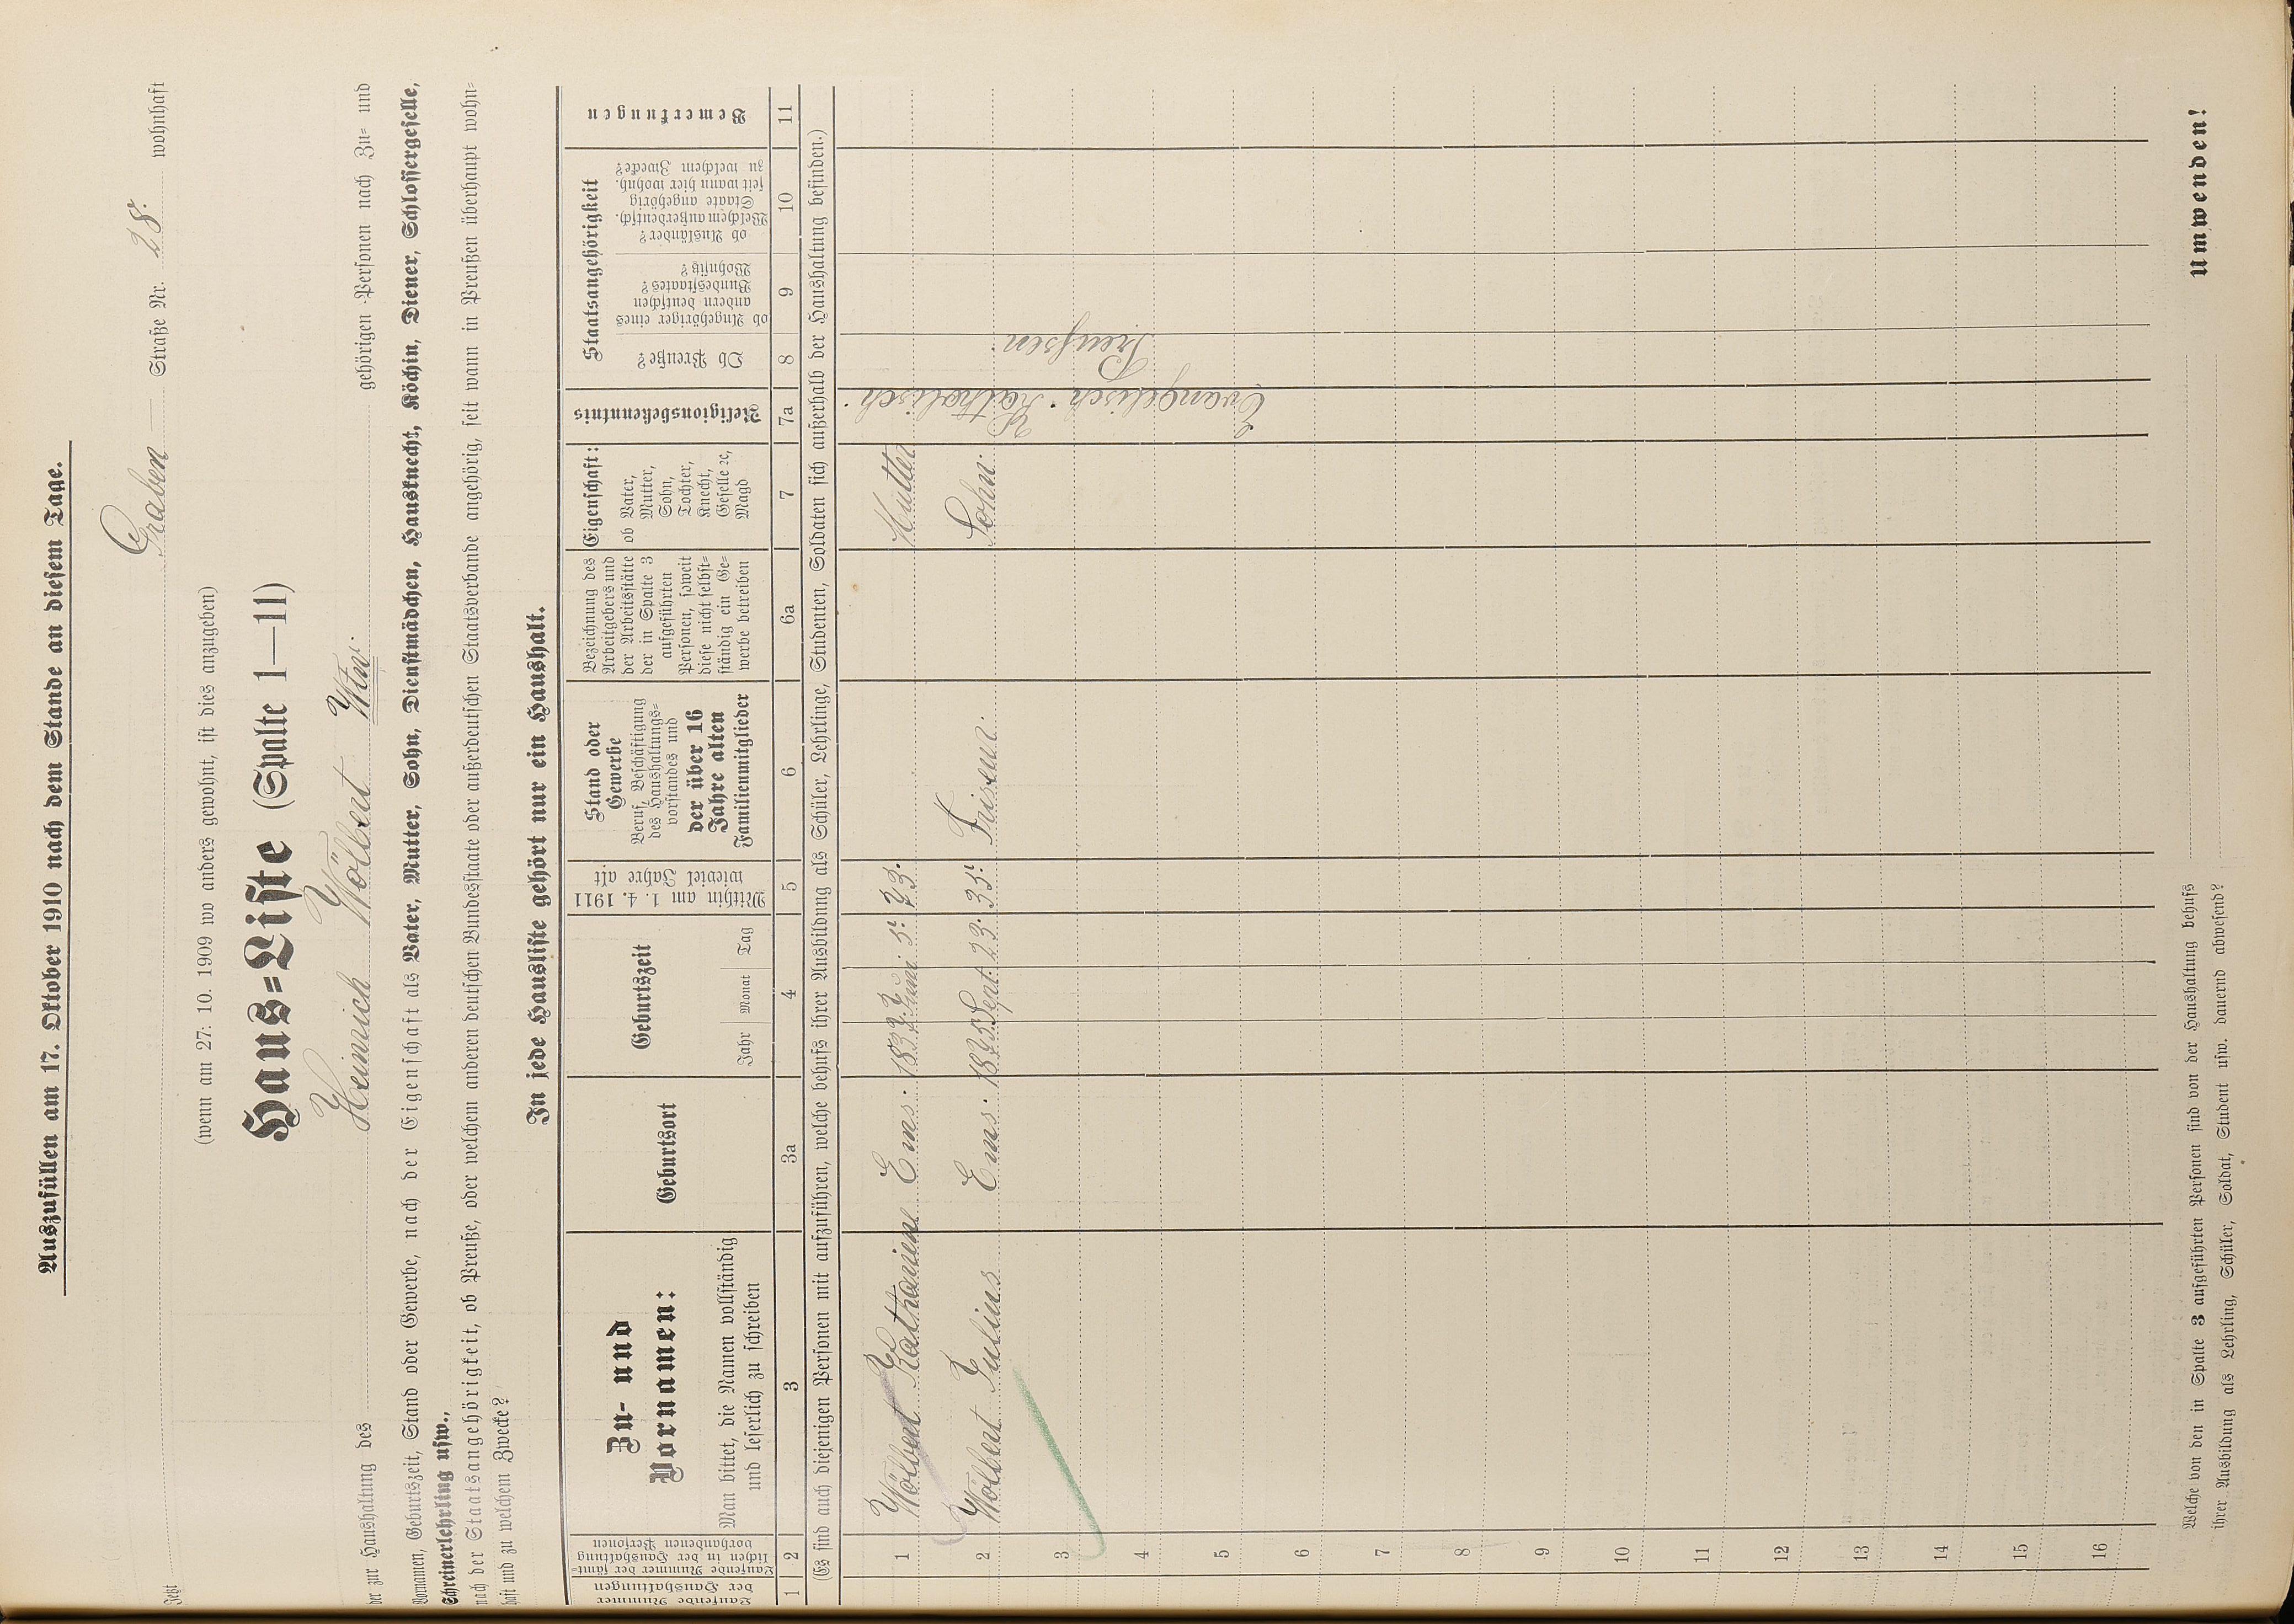 Auszufüllen am 17. Oktober 1910 nach dem Stande an diesem Tage.
Jetzt Graben — Straße Nr. 28. wohnhaft
(wenn am 27. 10. 1909 wo anders gewohnt, ist dies anzugeben)
Haus=Liste (Spalte 1—11)
der zur Haushaltung des Heinrich Wölbert Wtw. gehörigen Personen nach Zu= und
Vornamen, Geburtszeit, Stand oder Gewerbe, nach der Eigenschaft als Vater, Mutter, Sohn, Dienstmädchen, Hausknecht, Köchin, Diener, Schlossergeselle,
Schreinerlehrling usw.,
nach der Staatsangehörigkeit, ob Preuße, oder welchem anderen deutschen Bundesstaate oder außerdeutschen Staatsverbande angehörig, seit wann in Preußen überhaupt wohn=
haft und zu welchem Zwecke?
In jede Hausliste gehört nur ein Haushalt.
Laufende Nummer
der Haushaltungen
Laufende Nummer der sämt=
lichen in der Haushaltung
vorhandenen Personen
Zu- und
Vornamen:
Man bittet, die Namen vollständig
und leserlich zu schreiben
Geburtsort
Geburtszeit
Jahr Monat Tag
Mithin am 1. 4. 1911
wieviel Jahre alt
Stand oder
Gewerbe
Beruf, Beschäftigung
des Haushaltungs=
vorstandes und
der über 16
Jahre alten
Familienmitglieder
Bezeichnung des
Arbeitgebers und
der Arbeitsstätte
der in Spalte 3
aufgeführten
Personen, soweit
diese nicht selbst=
ständig ein Ge=
werbe betreiben
Eigenschaft:
ob Vater,
Mutter,
Sohn,
Tochter,
Knecht,
Geselle ꝛc,
Magd
Religionsbekenntnis
Staatsangehörigkeit
Ob Preuße?
ob Angehöriger eines
andern deutschen
Bundesstaates?
Wohnsitz?
ob Ausländer?
Welchem außerdeutsch.
Staate angehörig
seit wann hier wohnh.
zu welchem Zwecke?
Bemerkungen
1 2 3 3a 4 5 6 6a 7 7a 8 9 10 11
(Es sind auch diejenigen Personen mit aufzuführen, welche behufs ihrer Ausbildung als Schüler, Lehrlinge, Studenten, Soldaten sich außerhalb der Haushaltung befinden.)
1 Wölbert Katharina Ems. 1837. Juni 5. 73. Mutter
2 Wölbert Julius Ems. 1875 Sept. 23. 35. Friseur. Sohn.
Katholisch.
Evangelisch.
Preussen.
3
4
5
6
7
8
9
10
11
12
13
14
15
16
Welche von den in Spalte 3 aufgeführten Personen sind von der Haushaltung behufs
ihrer Ausbildung als Lehrling, Schüler, Soldat, Student usw. dauernd abwesend?
Umwenden!